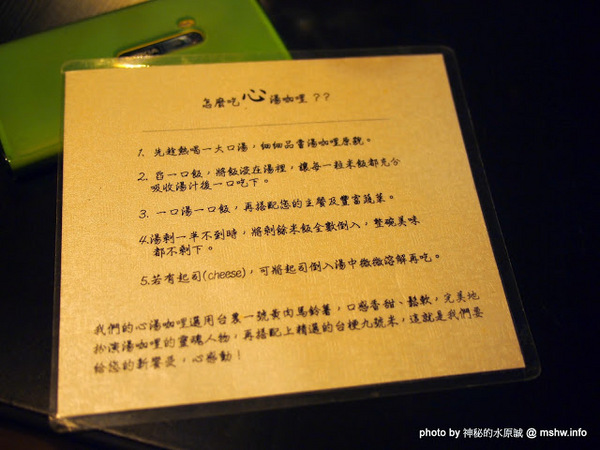 怎麼吃心湯咖哩??
1. 先趁熱喝一大口湯，細細品嘗湯咖哩原貌。
2. 舀一口飯，將飯浸在湯裡，讓每一粒米飯都充分
吸收湯汁後一口吃下。
3. 一口湯一口飯，再搭配您的主餐及豐富蔬菜。
4.湯剩一半不到時，將剩餘米飯全數倒入，整碗美味
都不剩下。
5.若有起司(cheese)，可將起司倒入湯中微微溶解再吃。
我們的心湯咖哩選用台農一號黃肉馬鈴薯，口感香甜、鬆軟，完美地
扮演湯咖哩的靈魂人物，再搭配上精選的台梗九號米，這就是我們要
給您的新饗宴，心感動！
photo by 神秘的水原誠 @ mshw.info